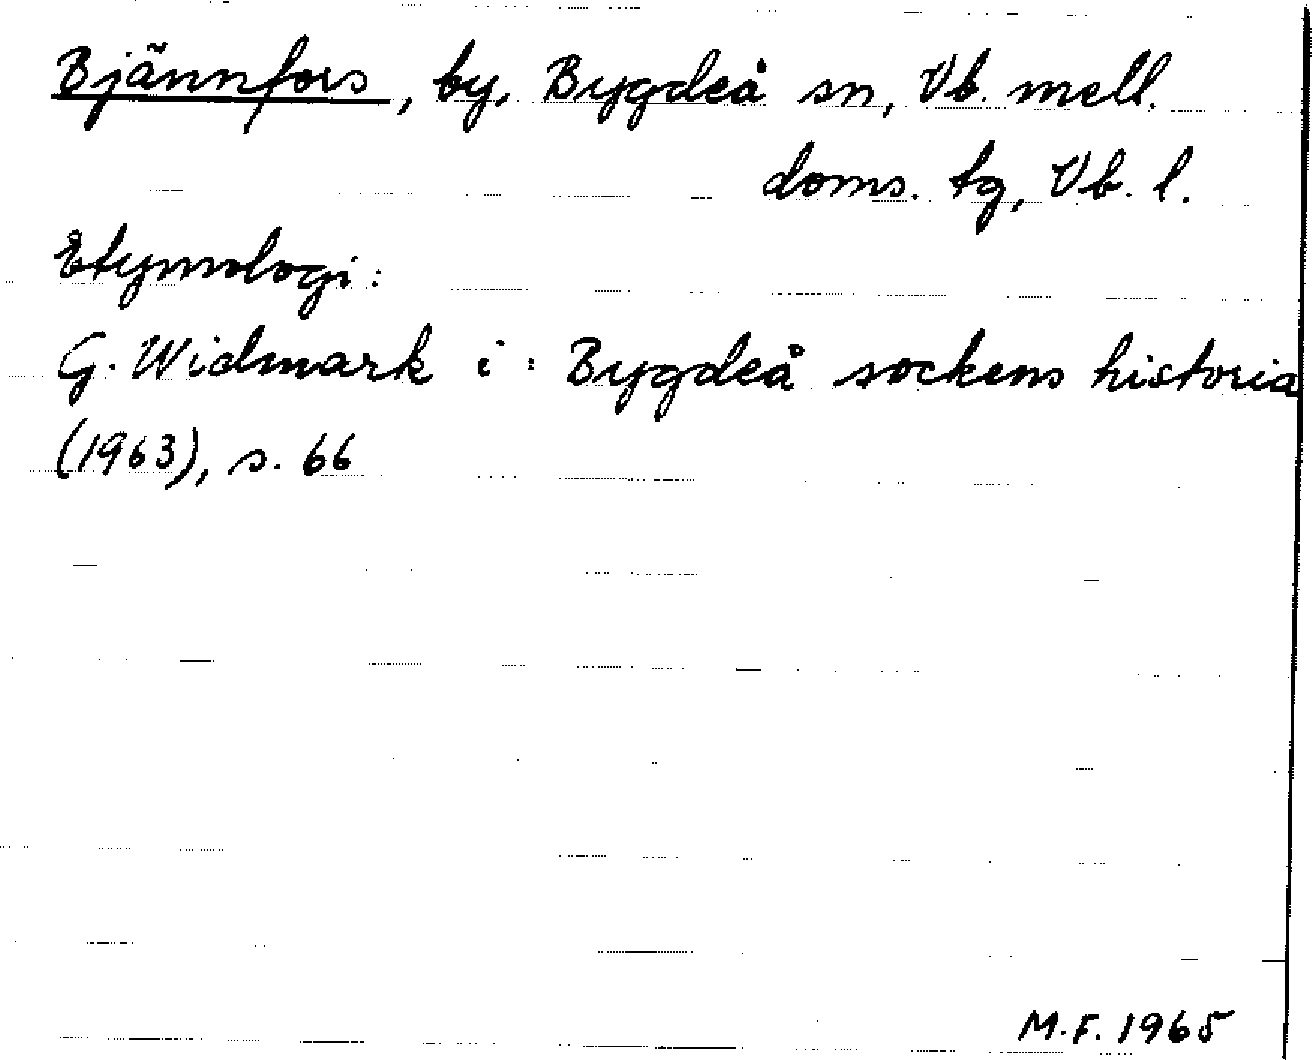 Bjännfors, by, Bygdeå sn, Vb. mell.
doms. tg, Vb. l.
Etymologi:
G. Widmark i: Bygdeå sockens historia
(1963), s. 66
M.F. 1965